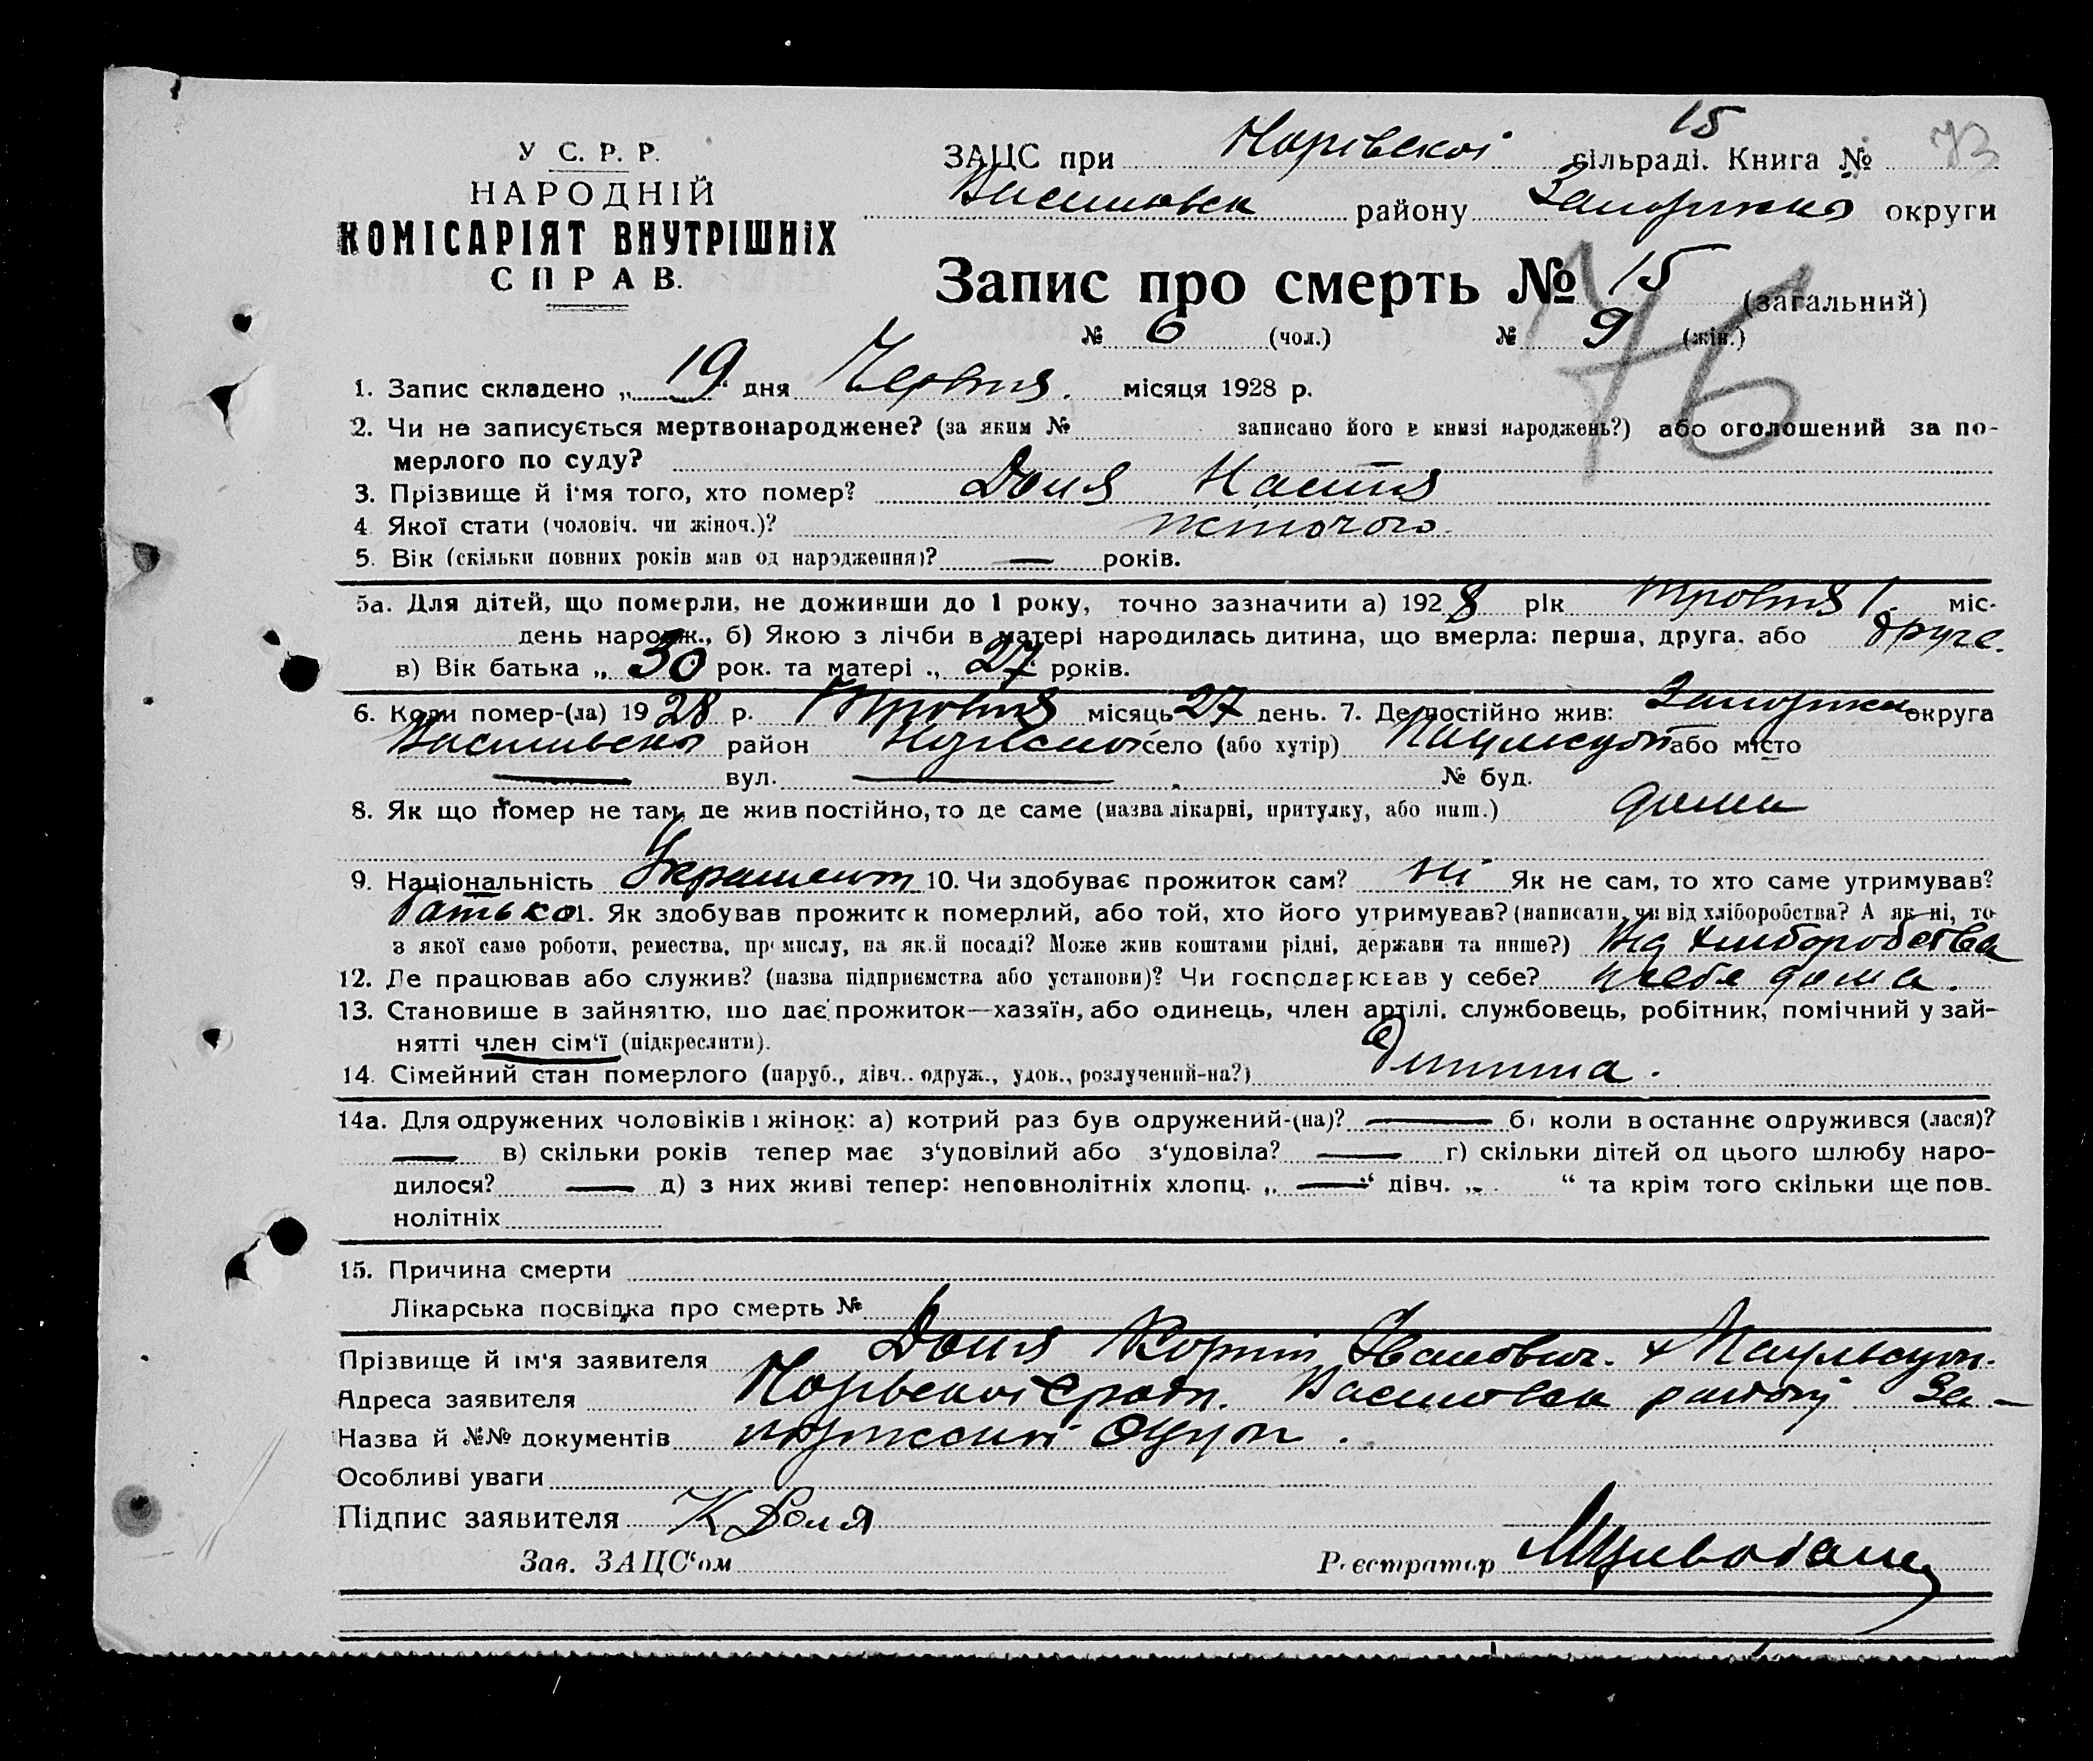 У С. Р. Р.
НАРОДНІЙ
КОМІСАРІЯТ ВНУТРІШНІХ
СПРАВ.
15
73
ЗАЦС при сільраді. Книга №
району округи
Запис про смерть № 15 (загальний)
76
№ 6 (чол.) № 9 (жін.)
1. Запис складено „ 19 “ дня Червня. місяця 1928 р.
2. Чи не записується мертвонароджене? (за яким № записано його в книзі народжень?) або оголошений за по-
мерлого по суду?
3. Прізвище й ім'я того, хто помер? Доля Настя
4 Якої стати (чоловіч. чи жіноч.)? жіночого.
5. Вік (скільки повних років мав од народження)? — років.
5а. Для дітей, що померли, не доживши до 1 року, точно зазначити а) 1928 рік Травня 1. міс.
день народж., б) Якою з лічби в матері народилась дитина, що вмерла: перша, друга, або друге.
в) Вік батька „ 30 рок. та матері „ 27 років.
6. Коли помер-(ла) 1928 р. Травня місяць 27 день. 7. Де постійно жив: округа
район село (або хутір) або місто
— вул. — № буд.
8. Як що помер не там, де жив постійно, то де саме (назва лікарні, притулку, або инш.) дома
9. Національність 10. Чи здобуває прожиток сам? ні Як не сам, то хто саме утримував?
батько 11. Як здобував прожиток померлий, або той, хто його утримував? (написати, чи від хліборобства? А як ні, то
з якої само роботи, ремества, промислу, на якій посаді? Може жив коштами рідні, держави та инше?) Від хліборобства
12. Де працював або служив? (назва підприємства або установи)? Чи господарював у себе? у себе дома.
13. Становище в зайняттю, що дає прожиток—хазяїн, або одинець, член артілі, службовець, робітник, помічний у зай-
нятті член сім'ї (підкреслити).
14. Сімейний стан померлого (паруб., дівч., одруж., удов., розлучений-на?) дитина.
14а. Для одружених чоловіків і жінок: а) котрий раз був одружений-(на)? — б) коли в останнє одружився (лася)?
— в) скільки років тепер має з'удовілий або з'удовіла? — г) скільки дітей од цього шлюбу наро-
дилося? — д) з них живі тепер: неповнолітніх хлопц. „ — “ дівч. „ “ та крім того скільки ще пов-
нолітніх
15. Причина смерти
Лікарська посвідка про смерть №
Прізвище й ім'я заявителя Доля Іванович.
Адреса заявителя району За-
Назва й №№ документів
Особливі уваги
Підпис заявителя К Доля
Зав. ЗАЦС'ом Реєстратор